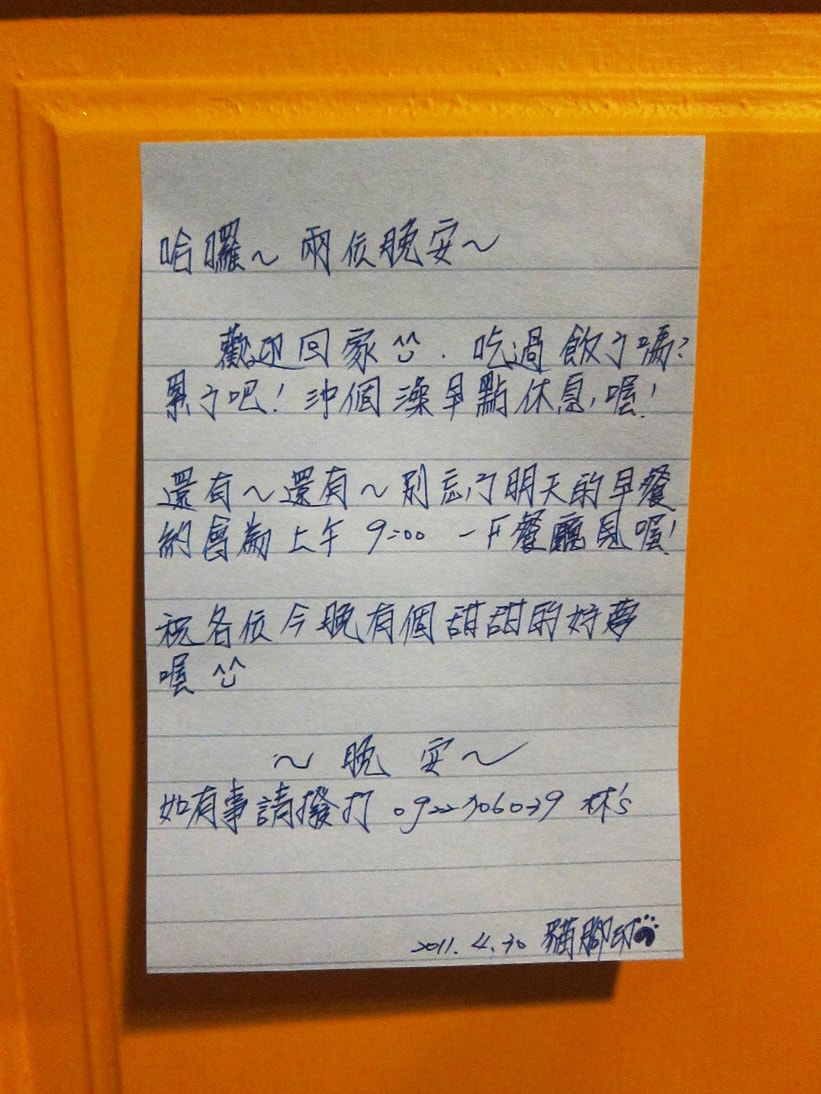 哈囉~ 兩位晚安~
歡迎回家^^. 吃過飯了嗎?
累了吧! 沖個澡早點休息,喔!
還有~還有~別忘了明天的早餐
約會為上午 9:00 一F餐廳見喔!
祝各位今晚有個甜甜的好夢
喔 ^^
~ 晚 安~
如有事請撥打 林's
2011.4.30 貓腳印